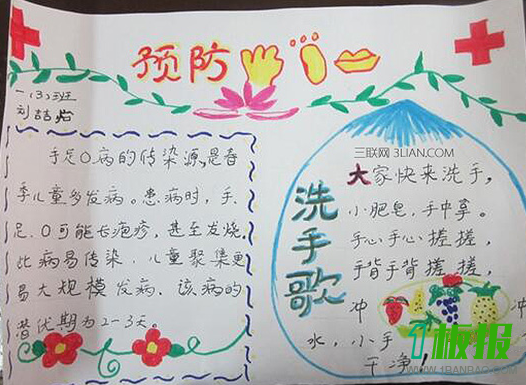 预防
一(3)班
刘喆怡
手足O病的传染源,是春
季儿童多发病。患病时,手、
足、O可能长疱疹,甚至发烧。
此病易传染,儿童聚集更
易大规模发病。该病的
潜伏期为2-3天。
洗手歌
大家快来洗手,
小肥皂,手中拿。
手心手心搓搓,
手背手背搓搓,
冲冲
水,小手
干净!
三联网 3LIAN.COM
1板报
WWW.1BANBAO.COM